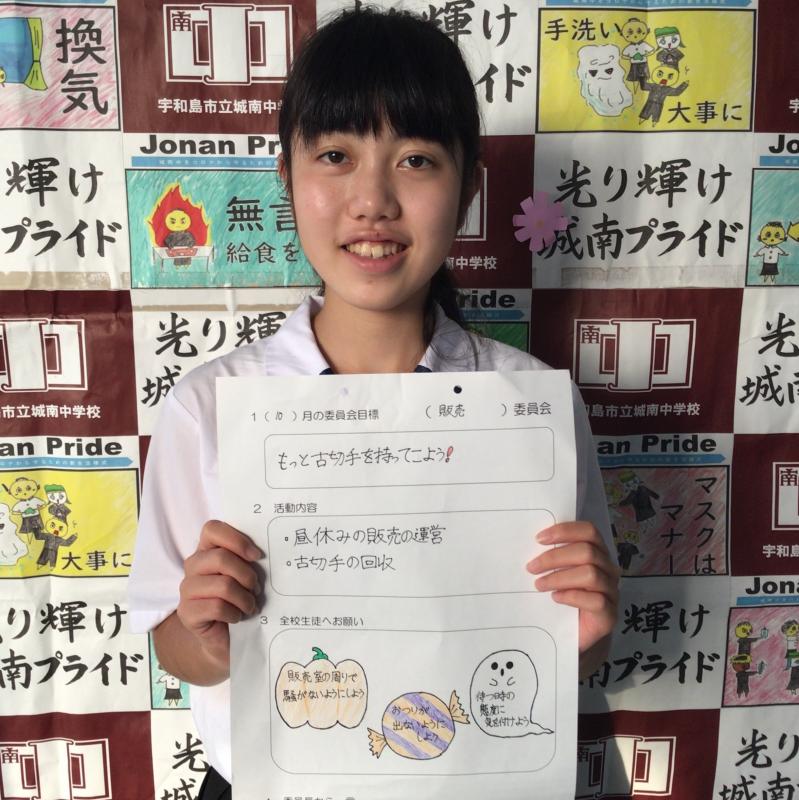 換気
南中
宇和島市立城南中学校
手洗い
大事に
Jonan Pride
光り輝け
城南プライド
無言
給食を
Pride
1 ( 10 ) 月の委員会目標 ( 販売 ) 委員会
もっと古切手を持ってこよう!
2 活動内容
・昼休みの販売の運営
・古切手の回収
3 全校生徒へお願い
販売室の周りで
騒がないようにしよう
おつりが
出ないように
しよう
待つ時の
態度に
気を付けよう
輝け
プライド
Jonan Pride
光り輝
城南
市立城南中学校
Jonan Pride
大事に
り輝け
南プライド
光り輝け
城南プライド
和島市立城南中学校
Pride
マスクは
マナー
光り輝け
城南プライド
Jonan
宇和